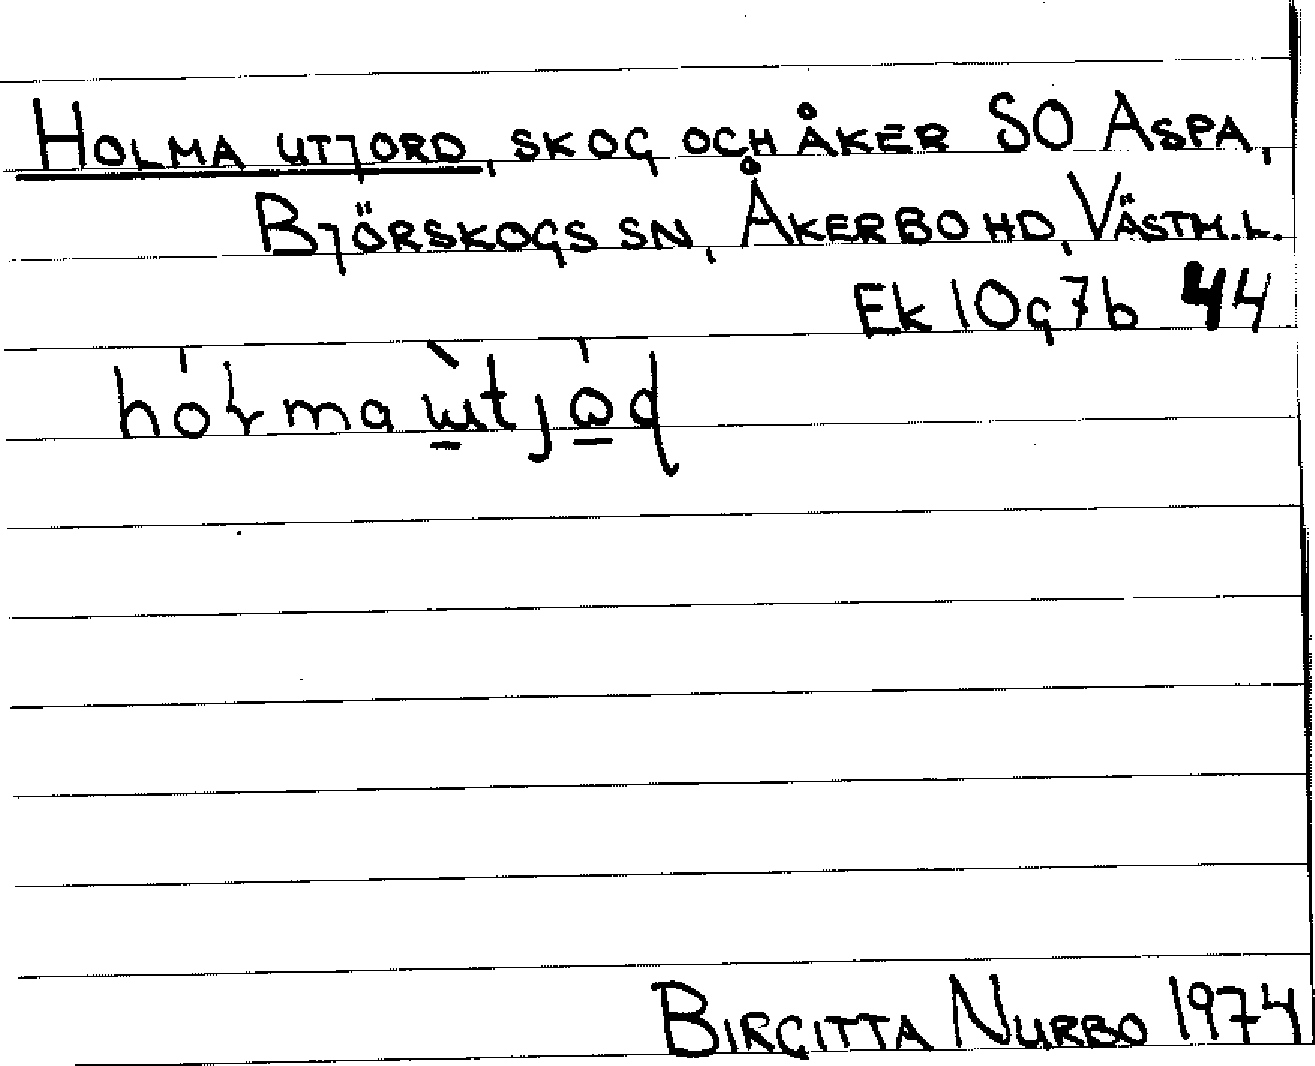 HOLMA UTJORD, SKOG OCH ÅKER SO ASPA,
BJÖRSKOGS SN, ÅKERBO HD, VÄSTM.L.
Ek 10g7b 44
BIRGITTA NURBO 1974